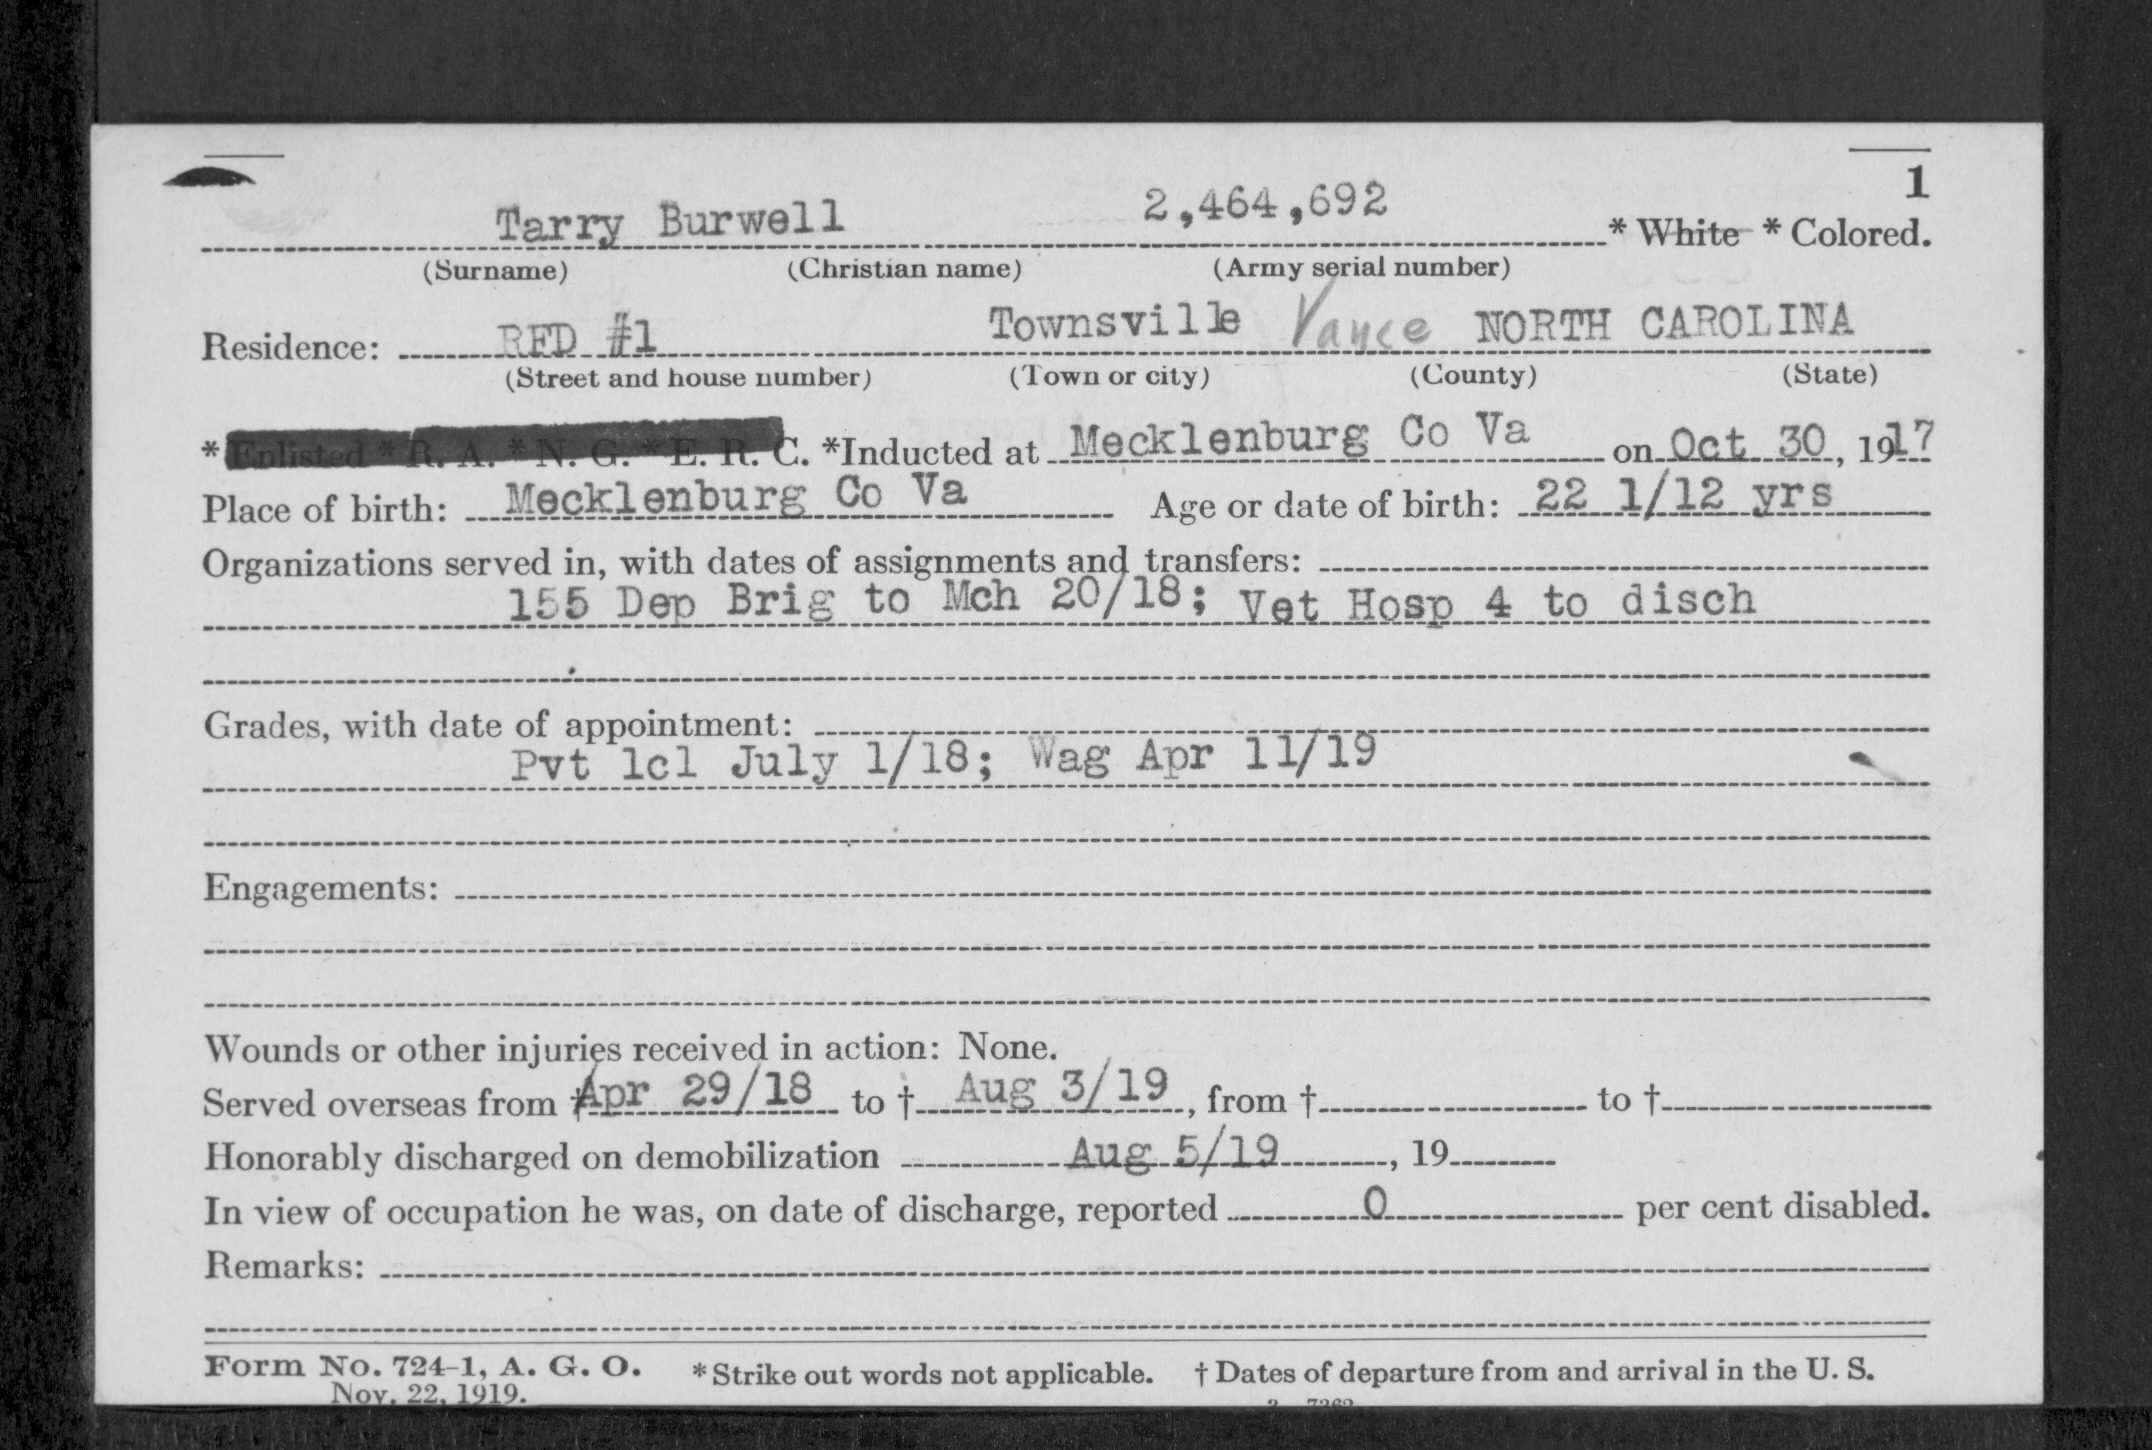 1
Tarry Burwell 2,464,692 * White * Colored.
(Surname) (Christian name) (Army serial number)
Residence: RFD #1 Townsville Vance NORTH CAROLINA
(Street and house number) (Town or city) (County) (State)
* Enlisted * R. A. * N. G. * E. R. C. *Inducted at Mecklenburg Co Va on Oct 30, 1917
Place of birth: Mecklenburg Co Va Age or date of birth: 22 1/12 yrs
Organizations served in, with dates of assignments and transfers:
155 Dep Brig to Mch 20/18; Vet Hosp 4 to disch
Grades, with date of appointment:
Pvt 1cl July 1/18; Wag Apr 11/19
Engagements:
Wounds or other injuries received in action: None.
Served overseas from † Apr 29/18 to † Aug 3/19, from † to †
Honorably discharged on demobilization Aug 5/19, 19
In view of occupation he was, on date of discharge, reported 0 per cent disabled.
Remarks:
Form No. 724-1, A. G. O. * Strike out words not applicable. † Dates of departure from and arrival in the U. S.
Nov. 22, 1919.